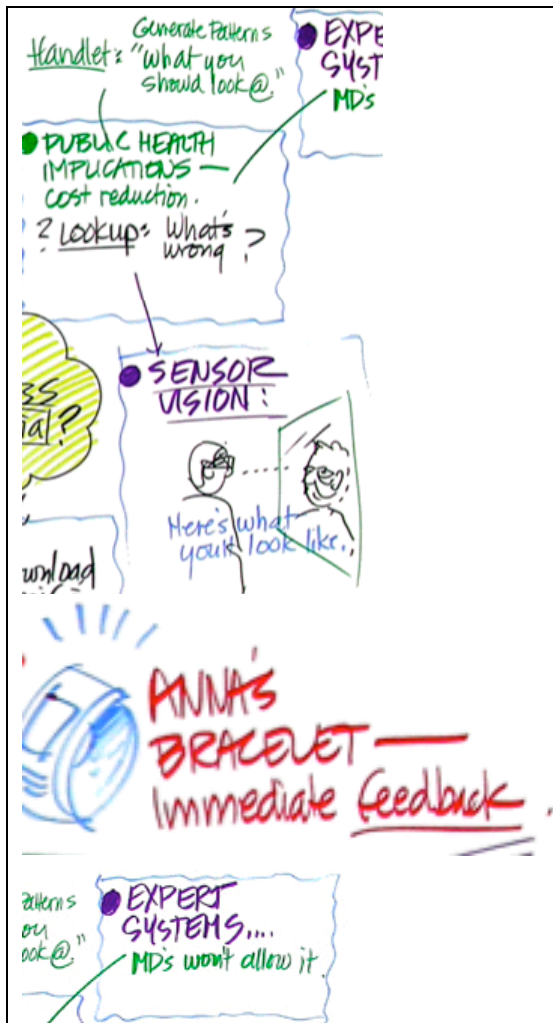 Handlet: Generate Patterns
"what you
should look@."
EXPE
SYST
MD's
PUBLIC HEALTH
IMPLICATIONS —
cost reduction.
? Lookup: What's
wrong ?
SS
ial?
SENSOR
VISION:
Here's what
you'll look like.
wnload
ANNA'S
BRACELET —
Immediate feedback.
atterns
ou
ook@."
EXPERT
SYSTEMS....
MD's won't allow it.